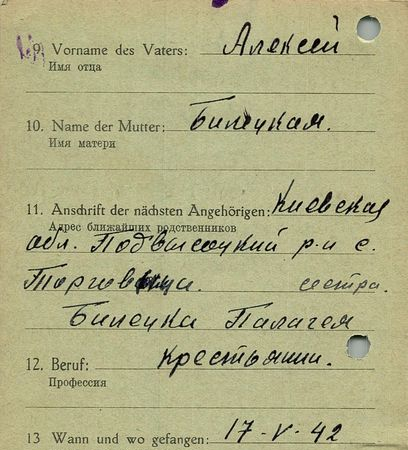 9. Vorname des Vaters: Алексей
Имя отца
10. Name der Mutter: Билецкая.
Имя матери
11. Anschrift der nächsten Angehörigen: Киевская
Адрес ближайших родственников
обл. Подвысоцкий р-н с.
Торговица. сестра.
Билецка Палагея
12. Beruf: крестьянин.
Профессия
13 Wann und wo gefangen: 17-V-42